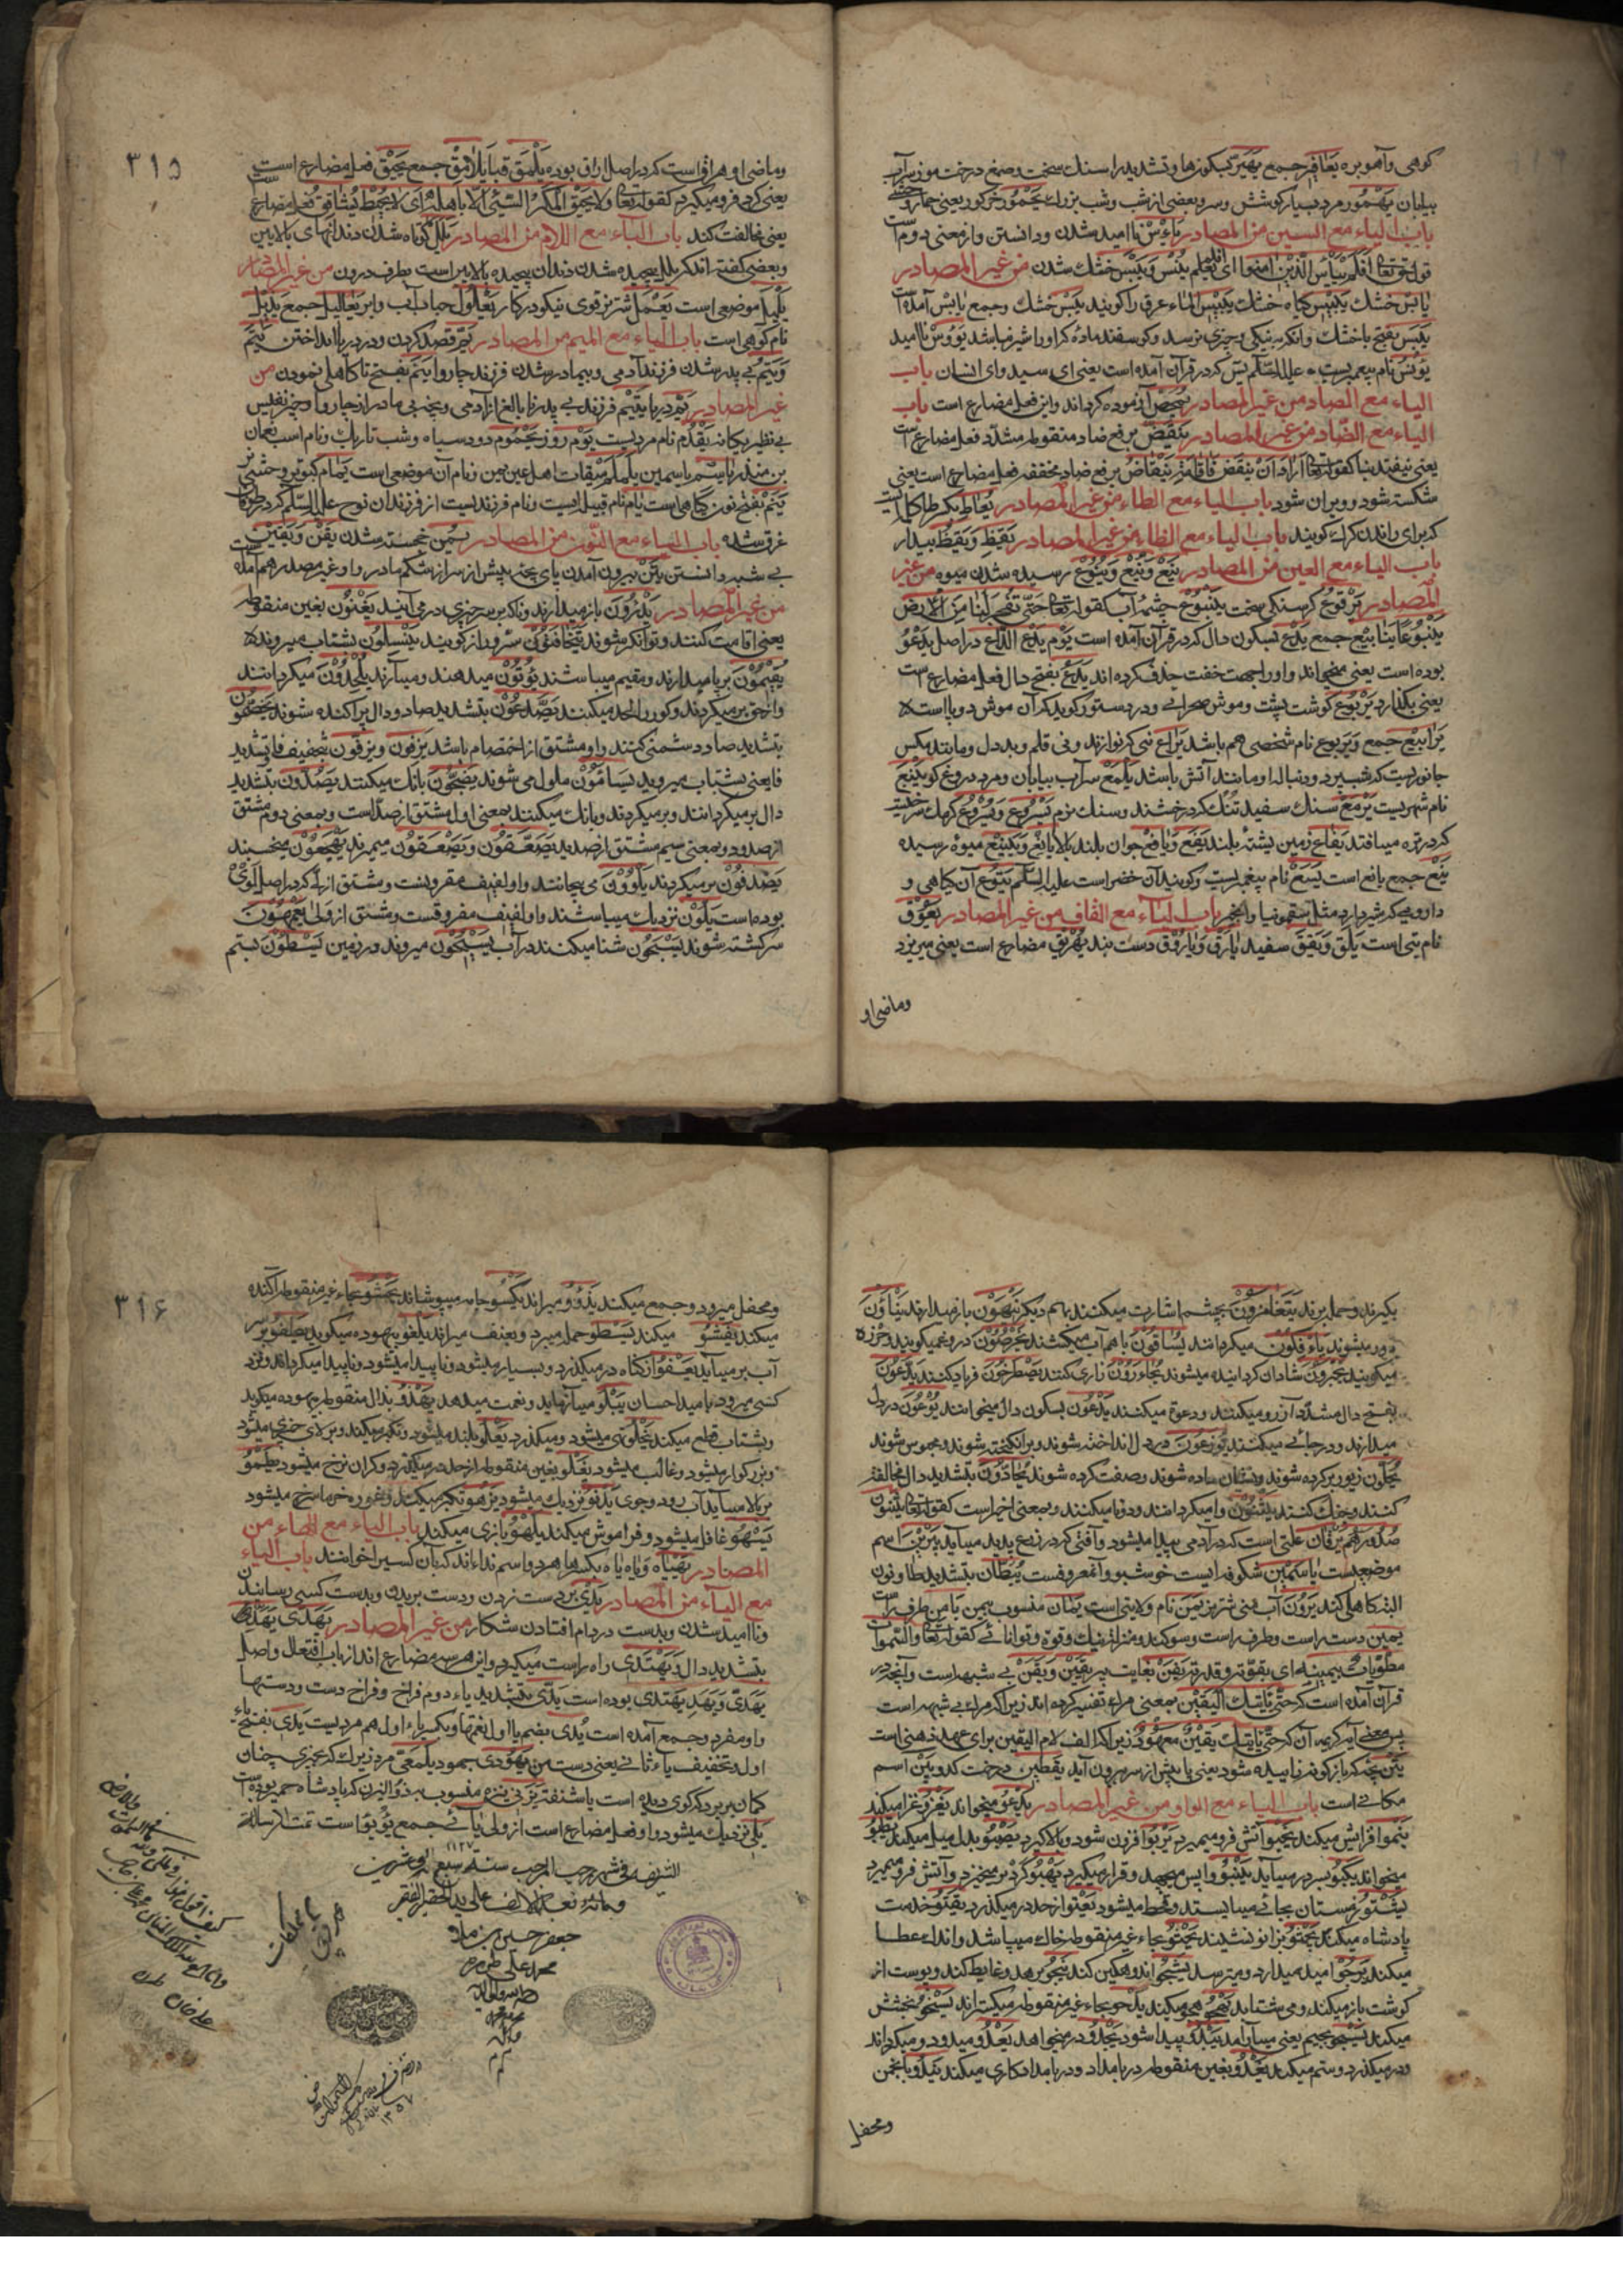 کوهی و آهو بره یعافیر جمع یهیر کیکوزها و تشدید را سنک سخت و صمغ درخت موز سرآب
بیابان یهمور مرد بسیار کوشش و سر و بعضی از شب و شب بزرك یحمور خر کور یعنی حمار وحشی
باب الیاء مع السین من المصادر یاءس ناامید شدن و دانستن و از معنی دوم است
قول حق تعالی افلم ییأس الذین امنوا ای افلم یعلم یبس و یبس خشك شدن من غیر المصادر
یابس خشك یبیس کیاه خشك یبیس الماء عرق را کویند یبس خشك و جمع یابس آمده است
یبس بفتح با خشك و انکه نیکی و چیزی نرسد و کوسفند ماده که او را شیر نباشد یؤوس ناامید
یونس نام پیغمبریست علیه السلام یس که در قرآن آمده است یعنی ای سید و ای انسان باب
الیاء مع الصاد من غیر المصادر یمحص آزموده کرداند و این فعل مضارع است باب
الیاء مع الضاد من غیر المصادر ینقض برفع ضاد منقوطه مشدد فعل مضارع است
یعنی بیفتد بنا کقوله تعالی اراد ان ینقض فاقامه ینقاض برفع ضاد مخففه فعل مضارع است یعنی
شکسته شود و ویران شود باب الیاء مع الطاء من غیر المصادر یعاط بکسر طا کلمه‌ایست
که برای راندن کرك کویند باب الیاء مع الظاء من غیر المصادر یقظ و یقظ بیدار
باب الیاء مع العین من المصادر ینع و ینع و ینوع رسیده شدن میوه من غیر
المصادر یرقوع کرسنکی سخت ینبوع چشمه آب کقوله تعالی حتی تفجر لنا من الارض
ینبوعا ینابیع جمع یدع بسکون دال که در قرآن آمده است یوم یدع الداع در اصل یدعو
بوده است یعنی میخواند و او را بجهت خفت حذف کرده اند یدع بفتح دال فعل مضارع است
یعنی بکذارد یربوع کوشت پشت و موش صحرائی و در دستور کوید که آن موش دو پا است
یرابیع جمع و یربوع نام شخصی هم باشد یراع نی که نوازند و نی قلم و بددل و مانند مکس
جانوریست که شب پرد و دنباله او مانند آتش باشد یلمع سراب بیابان و مرد دروغ کو ینبع
نام شهریست یرمع سنك سفید تنك که درخشد و سنك نرم یسروع و یسروع کرمك سرخیست
که در تره میافتد یفاع زمین پشته بلند یفع و یافع جوان بلند بالا یانع و ینیع میوه رسیده
ینع جمع یانع است یسع نام پیغمبریست و کویند آن خضر است علیه السلم یتوع آن کیاهی و
داروئی که شیر دارد مثل سقمونیا و انجیر باب الیاء مع القاف من غیر المصادر یعوق
نام بتی است یلق و یقق سفید یارق و یاروق دست بند یهریق مضارع است یعنی میریزد
و ماضی او
۳۱۵
و ماضی او هراق است که در اصل اراق بوده یلمق قبا یلامق جمع یحیق فعل مضارع است
یعنی کرد فرو میکیرد کقوله تعالی و لا یحیق المکر السیئ الا باهله ای لا یحیط یشاقق فعل مضارع است
یعنی مخالفت کند باب الیاء مع اللام من المصادر یلل کوتاه شدن دندانهای بالایین
و بعضی کفته اند که یلل پیچیده شدن دندان پیچیده بالایین است بطرف درون من غیر المصادر
یلیل موضعی است یعمل شتر نر قوی نیکو در کار یعلول حباب آب و ابر یعالیل جمع یذبل
نام کوهی است باب الیاء مع المیم من المصادر یم قصد کردن و در دریا انداختن یتم
و یتم بی پدر شدن فرزند آدمی و بیمادر شدن فرزند چاروا یتم بفتح تا کاهلی نمودن من
غیر المصادر یم دریا یتیم فرزند بی پدر نابالغ از آدمی و بچه بی مادر از چاروا و چیز نفیس
بی نظیر یکانه یقدم نام مردیست یوم روز یحموم دود سیاه و شب تاریك و نام اسب نعمان
بن منذر یاسم یاسمین یلملم میقات اهل یمن و نام آن موضعی است یمام کبوتر وحشی
ینم بفتح نون کیاهی است یام نام قبیله ایست و نام فرزندیست از فرزندان نوح علیه السلم که در طوفان
غرق شده باب الیاء مع النون من المصادر یمن خجسته شدن یقن و یقین
بی شبهه دانستن یتن بیرون آمدن پای بچه پیش از سر از شکم مادر و او غیر مصدر هم آمده است
من غیر المصادر یذرون باز میدارند و ناکه بر سر چیزی در می آیند یغنون بغین منقوطه
یعنی اقامت کنند و توانکر شوند یتخافتون سر و راز کویند ینسلون بشتاب میروند
یقیمون بر پا میدارند و مقیم میباشند یؤتون میدهند و میآرند یلحدون میکردانند
و از حق بر میکردند و کور را لحد میکنند یصدعون بتشدید صاد و دال پراکنده شوند یخصمون
بتشدید صاد دشمنی کنند و او مشتق از اختصام باشد یزفون و یزفون بتخفیف فا و تشدید
فا یعنی بشتاب میروند یسامون ملول می شوند یضجون بانك میکنند یصدون بتشدید
دال بر میکردانند و بر میکردند و بانك میکنند بمعنی اول مشتق از صد است و بمعنی دوم مشتق
از صدود و بمعنی سیم مشتق از صدید یصعقون و یصعقون میمیرند یهجعون میخسبند
یصدفون بر میکردند یلوون می پیچانند و او لفیف مقرونست و مشتق از لی که در اصل لوی
بوده است یلون نزدیك میباشند و او لفیف مفروقست و مشتق از ولی یعمهون
سرکشته شوند یسبحون شنا میکنند در آب یسیحون میروند در زمین یسطون بستم
بکیرند و حمله برند یتغامزون بچشم اشارت میکنند باهم دیکر ینهون باز میدارند ینأون
دور میشوند یاءفکون میکردانند یساقون باهم آب میکشند یخرصون دروغ میکویند و حزره
میکویند یحبرون شادان کردانیده میشوند یجاءرون زاری کنند یصطرخون فریاد کنند یدعون
بفتح دال مشدد آرزو میکنند و دعوة میکنند یدعون بسکون دال میخوانند یوعون در دل
میدارند و در جائی میکنند یوزعون در دل انداخته شوند و برانکیخته شوند و محبوس شوند
یحلون زیور بر کرده شوند و نشان ساده شوند و صفت کرده شوند یحادون بتشدید دال مخالفة
کنند و جنك کنند یثنون وا میکردانند و دو تا میکنند و بمعنی اخیر است کقوله تعالی یثنون
صدورهم یرقان علتی است که در آدمی پیدا میشود و آفتی که در زرع پدید میآید یبرین اسم
موضعیست یاسمین شکوفه ایست خوشبو و آن معروفست یبطان بتشدید طا و نون
البته کاهلی کند یرون آب منی شتر نر یمن نام ولایتی است یمان منسوب بیمن یامن طرف راست
یمین دست راست و طرف راست و سوکند و منزلة نیك و قوة و توانائی کقوله تعالی و السموات
مطویات بیمینه ای بقوته و قدرته یفن بغایت پیر یقین و یقن بی شبهه است و آنچه در
قرآن آمده است که حتی یاتیك الیقین بمعنی مرك تفسیر کرده اند زیرا که مرك بی شبهه است
پس معنی آیه کریمه آن که حتی یاتیك یقین معهود زیرا که الف لام الیقین برای عهد ذهنی است
یتن بچه که باز کونه زاییده شود یعنی پا پیش از سر بیرون آید یقطین درخت کدو یین اسم
مکانی است باب الیاء مع الواو من غیر المصادر یدعو میخواند یغزو غزا میکند
ینموا افزایش میکند یخبوا آتش فرو میمیرد یربوا افزون شود و بالا کیرد یصبو بدل میل میکند یتلو
میخواند یکبو بسر در میآید ینبو وا پس میجهد و قرار میکیرد یهبو کرد بر میخیزد و آتش فرو میمیرد
یشتو زمستان بجائی میبایستد و قحط میشود یعتوا از حد در میکذرد یقتو خدمت
پادشاه میکند یجثو بزانو نشیند یحثو بحاء غیر منقوطه خاك میپاشد و اندك عطا
میکند یرجوا امید میدارد و میترسد یشجوا اندوهکین کند ینجو برهد و غایط کند و پوست از
کوشت باز میکند و می شتابد یهجو هجو میکند یدحو بحاء غیر منقوطه میکستراند یسخو بخشش
میکند یسجو بجیم یعنی میآرامد یبدو پیدا شود یجدو در میخواهد یعدو میدود و میکرداند
و در میکذرد و ستم میکند یغدو بغین منقوطه در بامداد و در بامداد کاری میکند یندو بانجمن
و محفل
۳۱۶
و محفل میرود و جمع میکند یذؤو میراند یکسو جامه میپوشاند یحشو بحاء غیر منقوطه آکنده
میکند یفشو میکند یسطو حمله میبرد و بعنف میراند یلغو بیهوده میکوید یطفو بر سر
آب بر میآید یعفوا از کناه در میکذرد و بسیار میشود و ناپیدا میشود و ناپیدا میکرداند و نزد
کسی میرود بامید احسان یبلو میآزماید و نعمت میدهد یهذو بذال منقوطه بیهوده میکوید
و بشتاب قطع میکند یخلو تهی میشود و میکذرد یعلو بلند میشود و تکبر میکند و بر بالای چیزی میشود
و بزرکوار میشود و غالب میشود یغلو بغین منقوطه از حد در میکذرد و کران نرخ میشود یطمو
بر بالا میآید آب رود و جوی یدنو نزدیك میشود یزهو تکبر میکند و غوره خرما سرخ میشود
یسهو غافل میشود و فراموش میکند یلهو بازی میکند باب الیاء مع الهاء من
المصادر یهیاه و یاه یاه بکسرها هر دو اسم نداءاند که بآن کسی را خوانند باب الیاء
مع الیاء من المصادر یدی بر دست زدن و دست بریدن و بدست کسی رسانیدن
و ناامید شدن و بدست در دام افتادن شکار من غیر المصادر یهدی یهدی
بتشدید دال و یهتدی راه راست میکیرد و این هر سه مضارع اند از باب افتعال و اصل
یهدی و یهد یهتدی بوده است یدی بتشدید یاء دوم فراخ و فراخ دست و دستها
و او مفرد و جمع آمده است یدی بضم یا اول نعمتها و بکسر یاء اول هم مردیست یدی بفتح یاء
اول و تخفیف یاء ثانی یعنی دست من یهودی جهود یلمعی مرد زیرك که بچیزی چنان
کمان برد که کوی دیده است یا شنفته یزنی نیزه منسوب بذو الیزن که پادشاه حمیر بوده است
یلی نزدیك میشود و او فعل مضارع است از ولی یائی جمع یؤیؤ است تمت الرسالة
الشریفه فی شهر رجب المرجب سنه سبع و عشرین ۱۱۲۷
و مائة بعد الالف علی ید الحقیر الفقیر
جعفر حسین بن ملا
محمد علی
۱۳۵۷